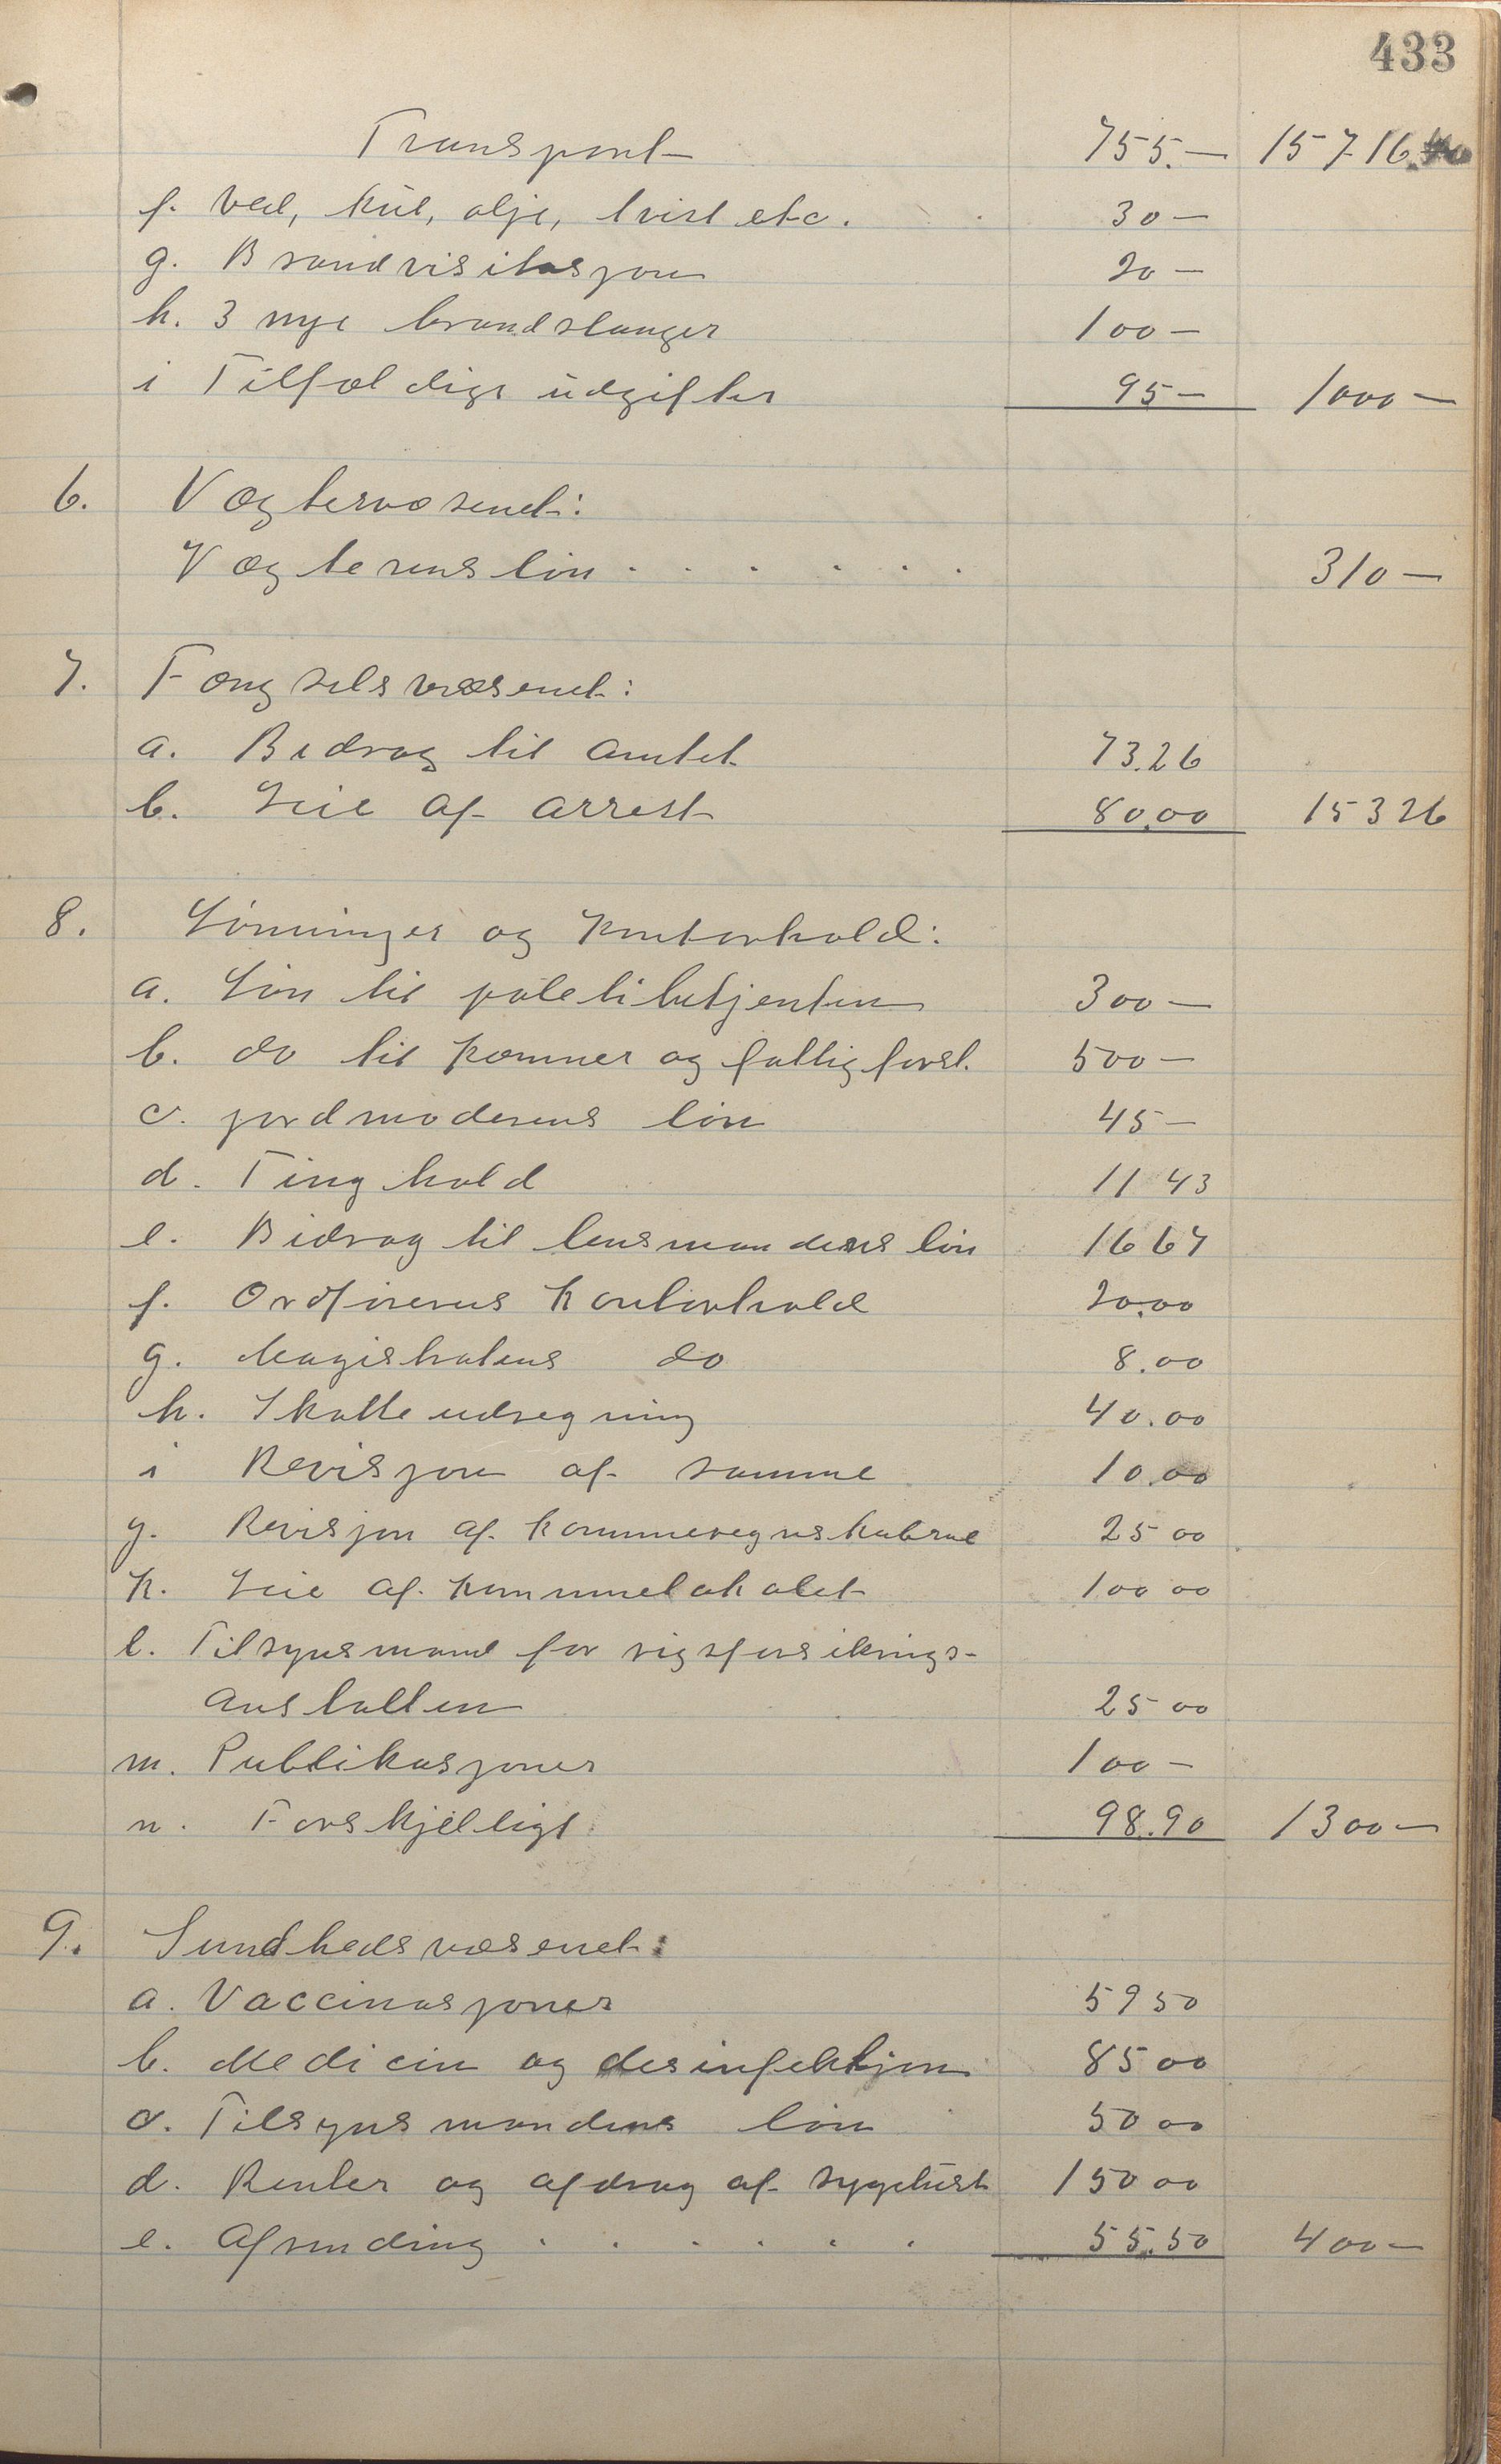 433
Transport 755.— 15716.40
f. Ved, kul, olje, tvist etc. 30—
g. Brandvisitasjon 20—
h. 3 nye brandslanger 100—
i Tilfældige udgifter 95— 1000—
6. Vægtervæsenet:
Vægterens løn . . . . . . 310—
7. Fængselsvæsenet:
a. Bidrag til amtet 73.26
b. Leie af arrest 80.00 153 26
8. Lønninger og kontorhold:
a. Løn til politibetjenten 300—
b. do til kæmner og fattigforst. 500—
c. jordmoderens løn 45—
d. Tinghold 11 43
e. Bidrag til lensmandens løn 16 67
f. Ordførerens kontorhold 20.00
g. Magistratens do 8.00
h. Skatteudregning 40.00
i Revisjon af samme 10.00
j. Revisjon af kommuneregnskaberne 25 00
k. Leie af kommunelokalet 100 00
l. Tilsynsmand for rigsforsikrings-
anstalten 25 00
m. Publikasjoner 100—
n. Forskjelligt 98.90 1300—
9. Sundhedsvæsenet:
a. Vaccinasjoner 59 50
b. Medicin og desinfeksjon 85 00
c. Tilsynsmandens løn 50 00
d. Renter og afdrag af sygehust 150 00
e. Afrunding . . . . . . 55.50 400—